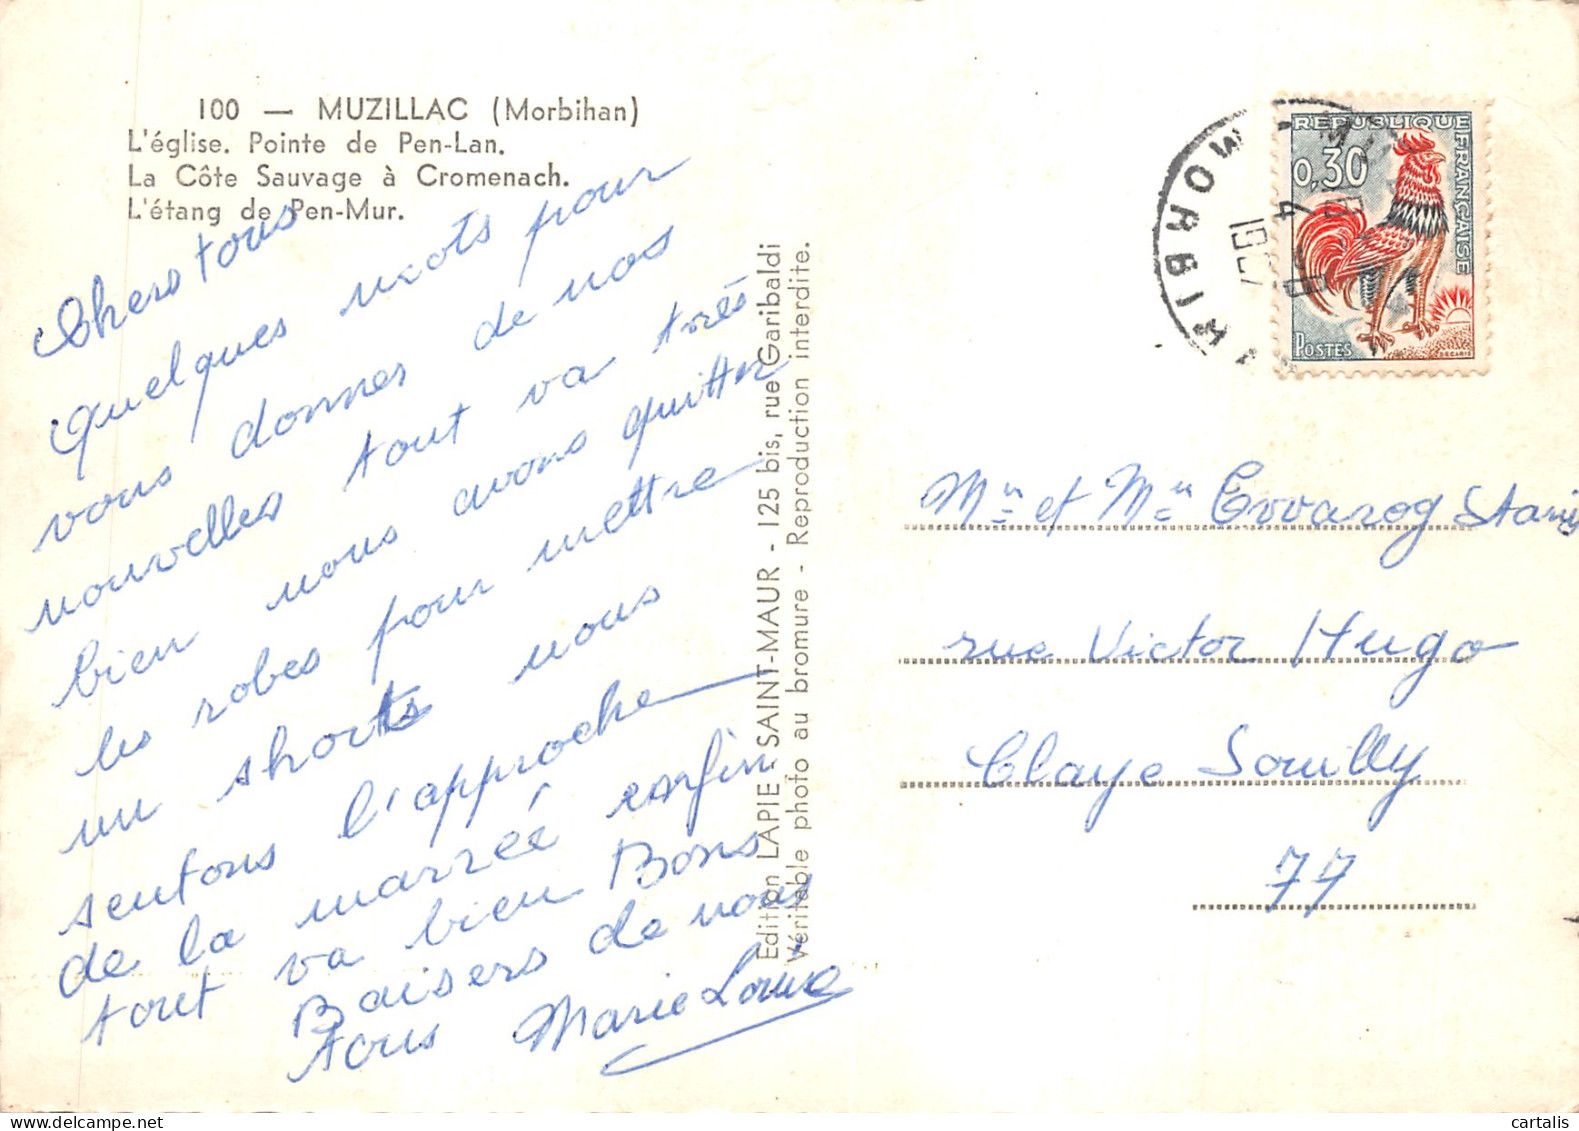 100 — MUZILLAC (Morbihan)
L'église. Pointe de Pen-Lan.
La Côte Sauvage à Cromenach.
L'étang de Pen-Mur.
Chers tous
Quelques mots pour
vous donner de nos
nouvelles tout va très
bien nous avons quitter
les robes pour mettre
un shorts nous
sentons l'approche
de la marrée enfin
tout va bien Bons
Baisers de nous
tous Marie Louise
Edition LAPIE - SAINT-MAUR - 125 bis, rue Garibaldi
Véritable photo au bromure - Reproduction interdite.
REPUBLIQUE FRANÇAISE
0,30
POSTES
DECARIS
MORBIHAN
Mr et Mme
rue Victor Hugo
Claye Souilly
77
cartalis